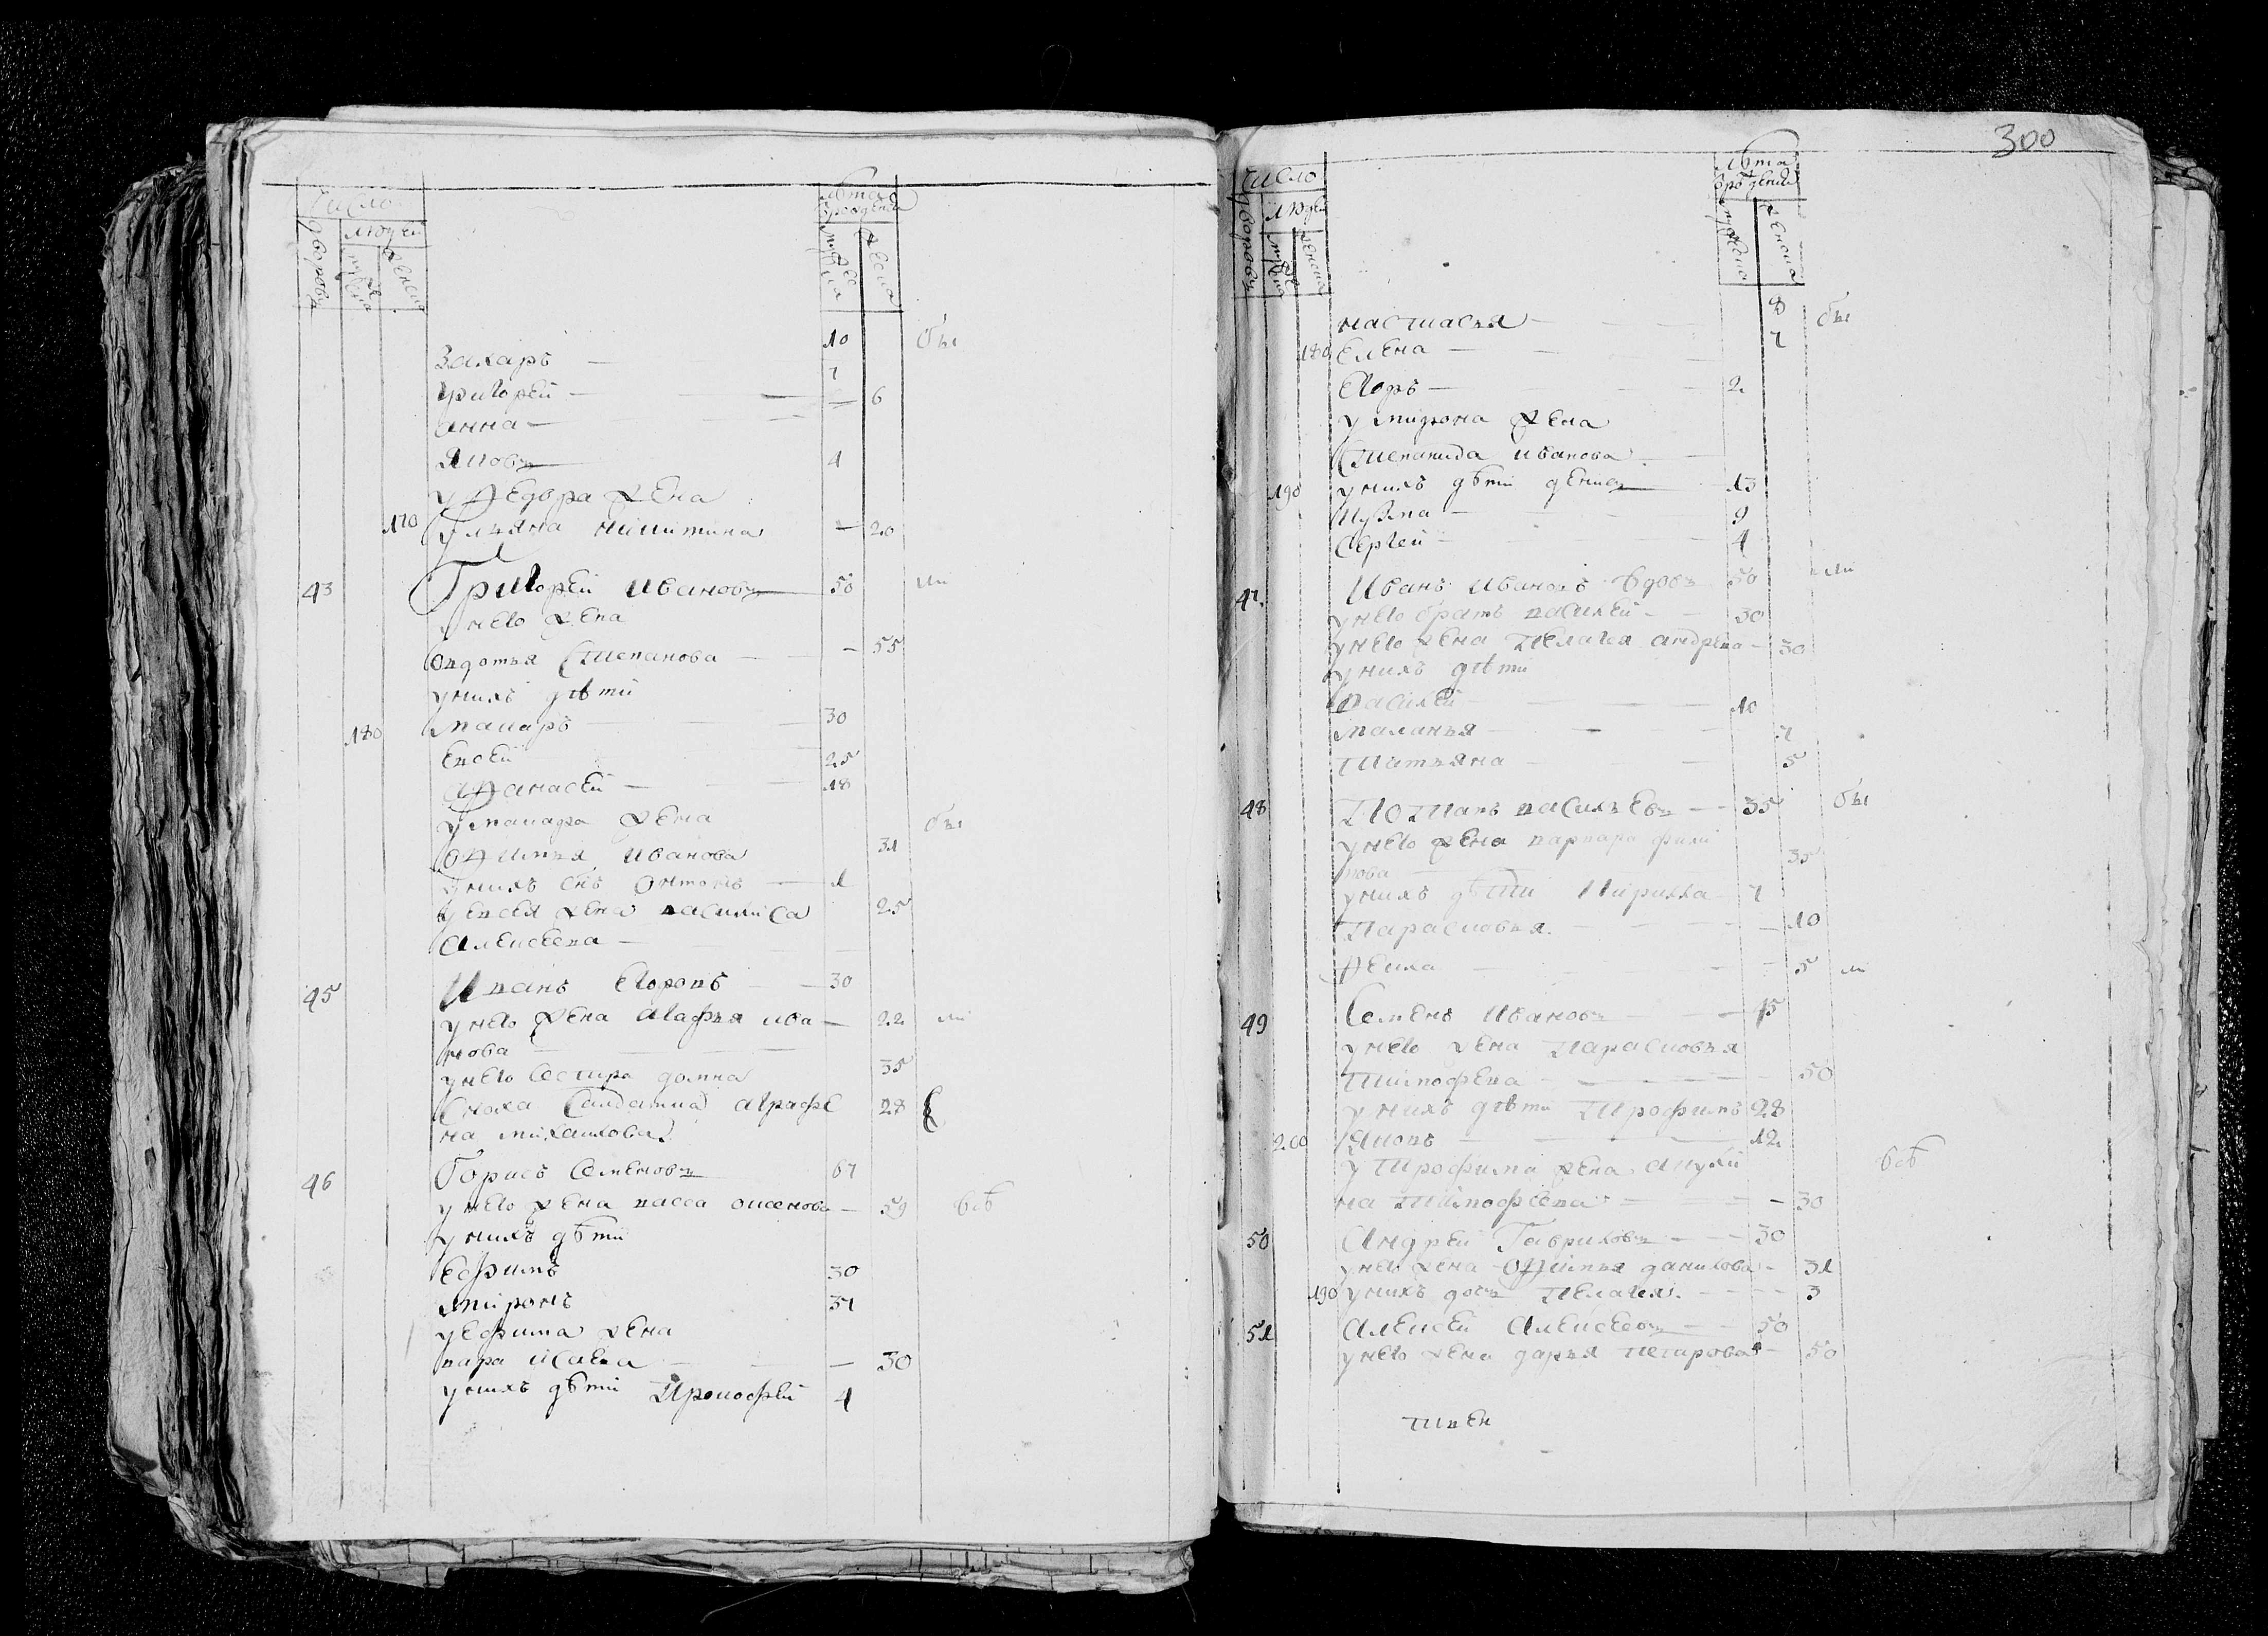 число
людей
дворовъ
мужеска
женска
лѣта
врожденiя
мужеска
женска
Захаръ — 10 бы
Григорей — 7
анна — 6
Яковъ 4
у Федора жена
170 ульяна никитина — 20
43 Григорей Ивановъ 50
у нево жена
овдотья Степанова — 55
у нихъ дѣти
180 макаръ — 30
Евсей 25
афанасей — 18
у макара жена бы
офимья Иванова 31
у нихъ снъ онтонъ — 1
у евсея жена василиса 25
алексеева —
45 Иванъ Егоровъ — 30
у нево жена агафья ива — 22
нова —
у нево сестра домна 35
сноха салдатка аграфе 28
на михаилова
46 Борисъ Семеновъ 67
у нево жена васса оксенова — 59
у нихъ дѣти
Ефимъ 30
миронъ 37
у ефима жена
вара исаева — 30
у нихъ дѣти Прокофей 4
300
число
людей
дворовъ
мужеска
женска
лѣта
врожденiя
мужеска
женска
настасья — 8 бы
180 Елена — 7
Егоръ — 2
у мирона жена
Степанида иванова
190 у нихъ дѣти денисъ 13
Кузма — 9
Сергей — 4
47 Иванъ Ивановъ вдовъ 50
у нево братъ василей — 30
у нево жена Пелагея андреева — 30
у нихъ дѣти
василей — 10
маланья — 7
Татьяна — 5
48 Потапъ васильевъ — 35 бы
у нево жена варвара фили
пова — 35
у нихъ дѣти Кирилла 7
Парасковья — 10
Фекла — 5
49 Семенъ Ивановъ — 45
у нево жена Парасковья
Тимофеева — 50
у нихъ дѣти Трофимъ 28
200 Яковъ — 12
у Трофима жена акули
на Тимофеева — 30
50 Андрей Гавриловъ — 30
у нево жена офимья данилова — 31
190 у нихъ дочь Пелагея — 3
51 Алексей Алексеевъ — 50
у нево жена дарья петрова — 50
твен